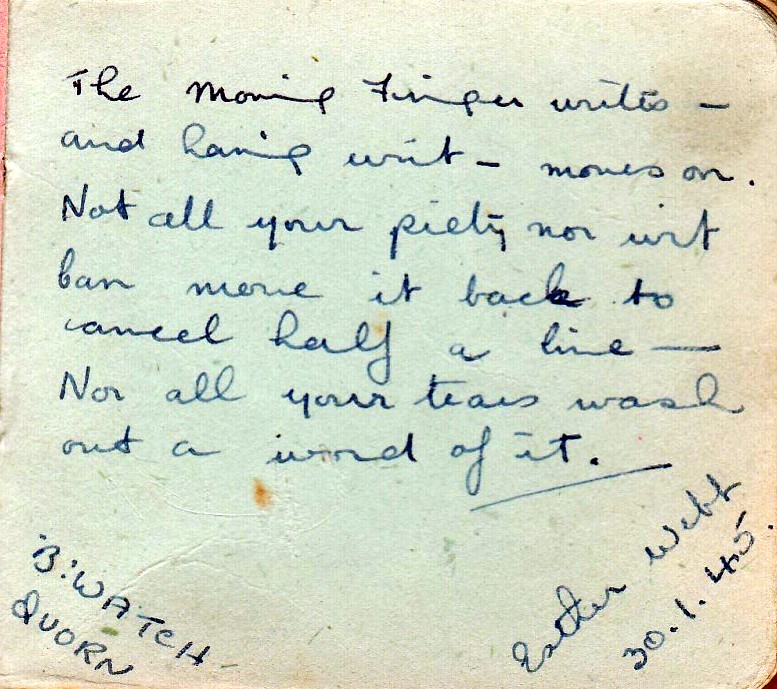 The Moving Finger writes –
and having writ – moves on.
Not all your piety nor wit
Can move it back to
cancel half a line —
Nor all your tears wash
out a word of it.
'B' WATCH –
QUORN
Esther Webb
30.1.45.